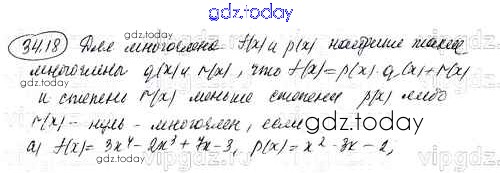 gdz.today
34.18 Для многочлена f(x) и p(x) найдите такие
многочлены q(x) и r(x), что f(x)=p(x)·q(x)+r(x)
и степень r(x) меньше степени p(x) либо
r(x) - нуль - многочлен, если
gdz.today
а) f(x)= 3x⁴-2x³+7x-3, p(x)=x²-3x-2;